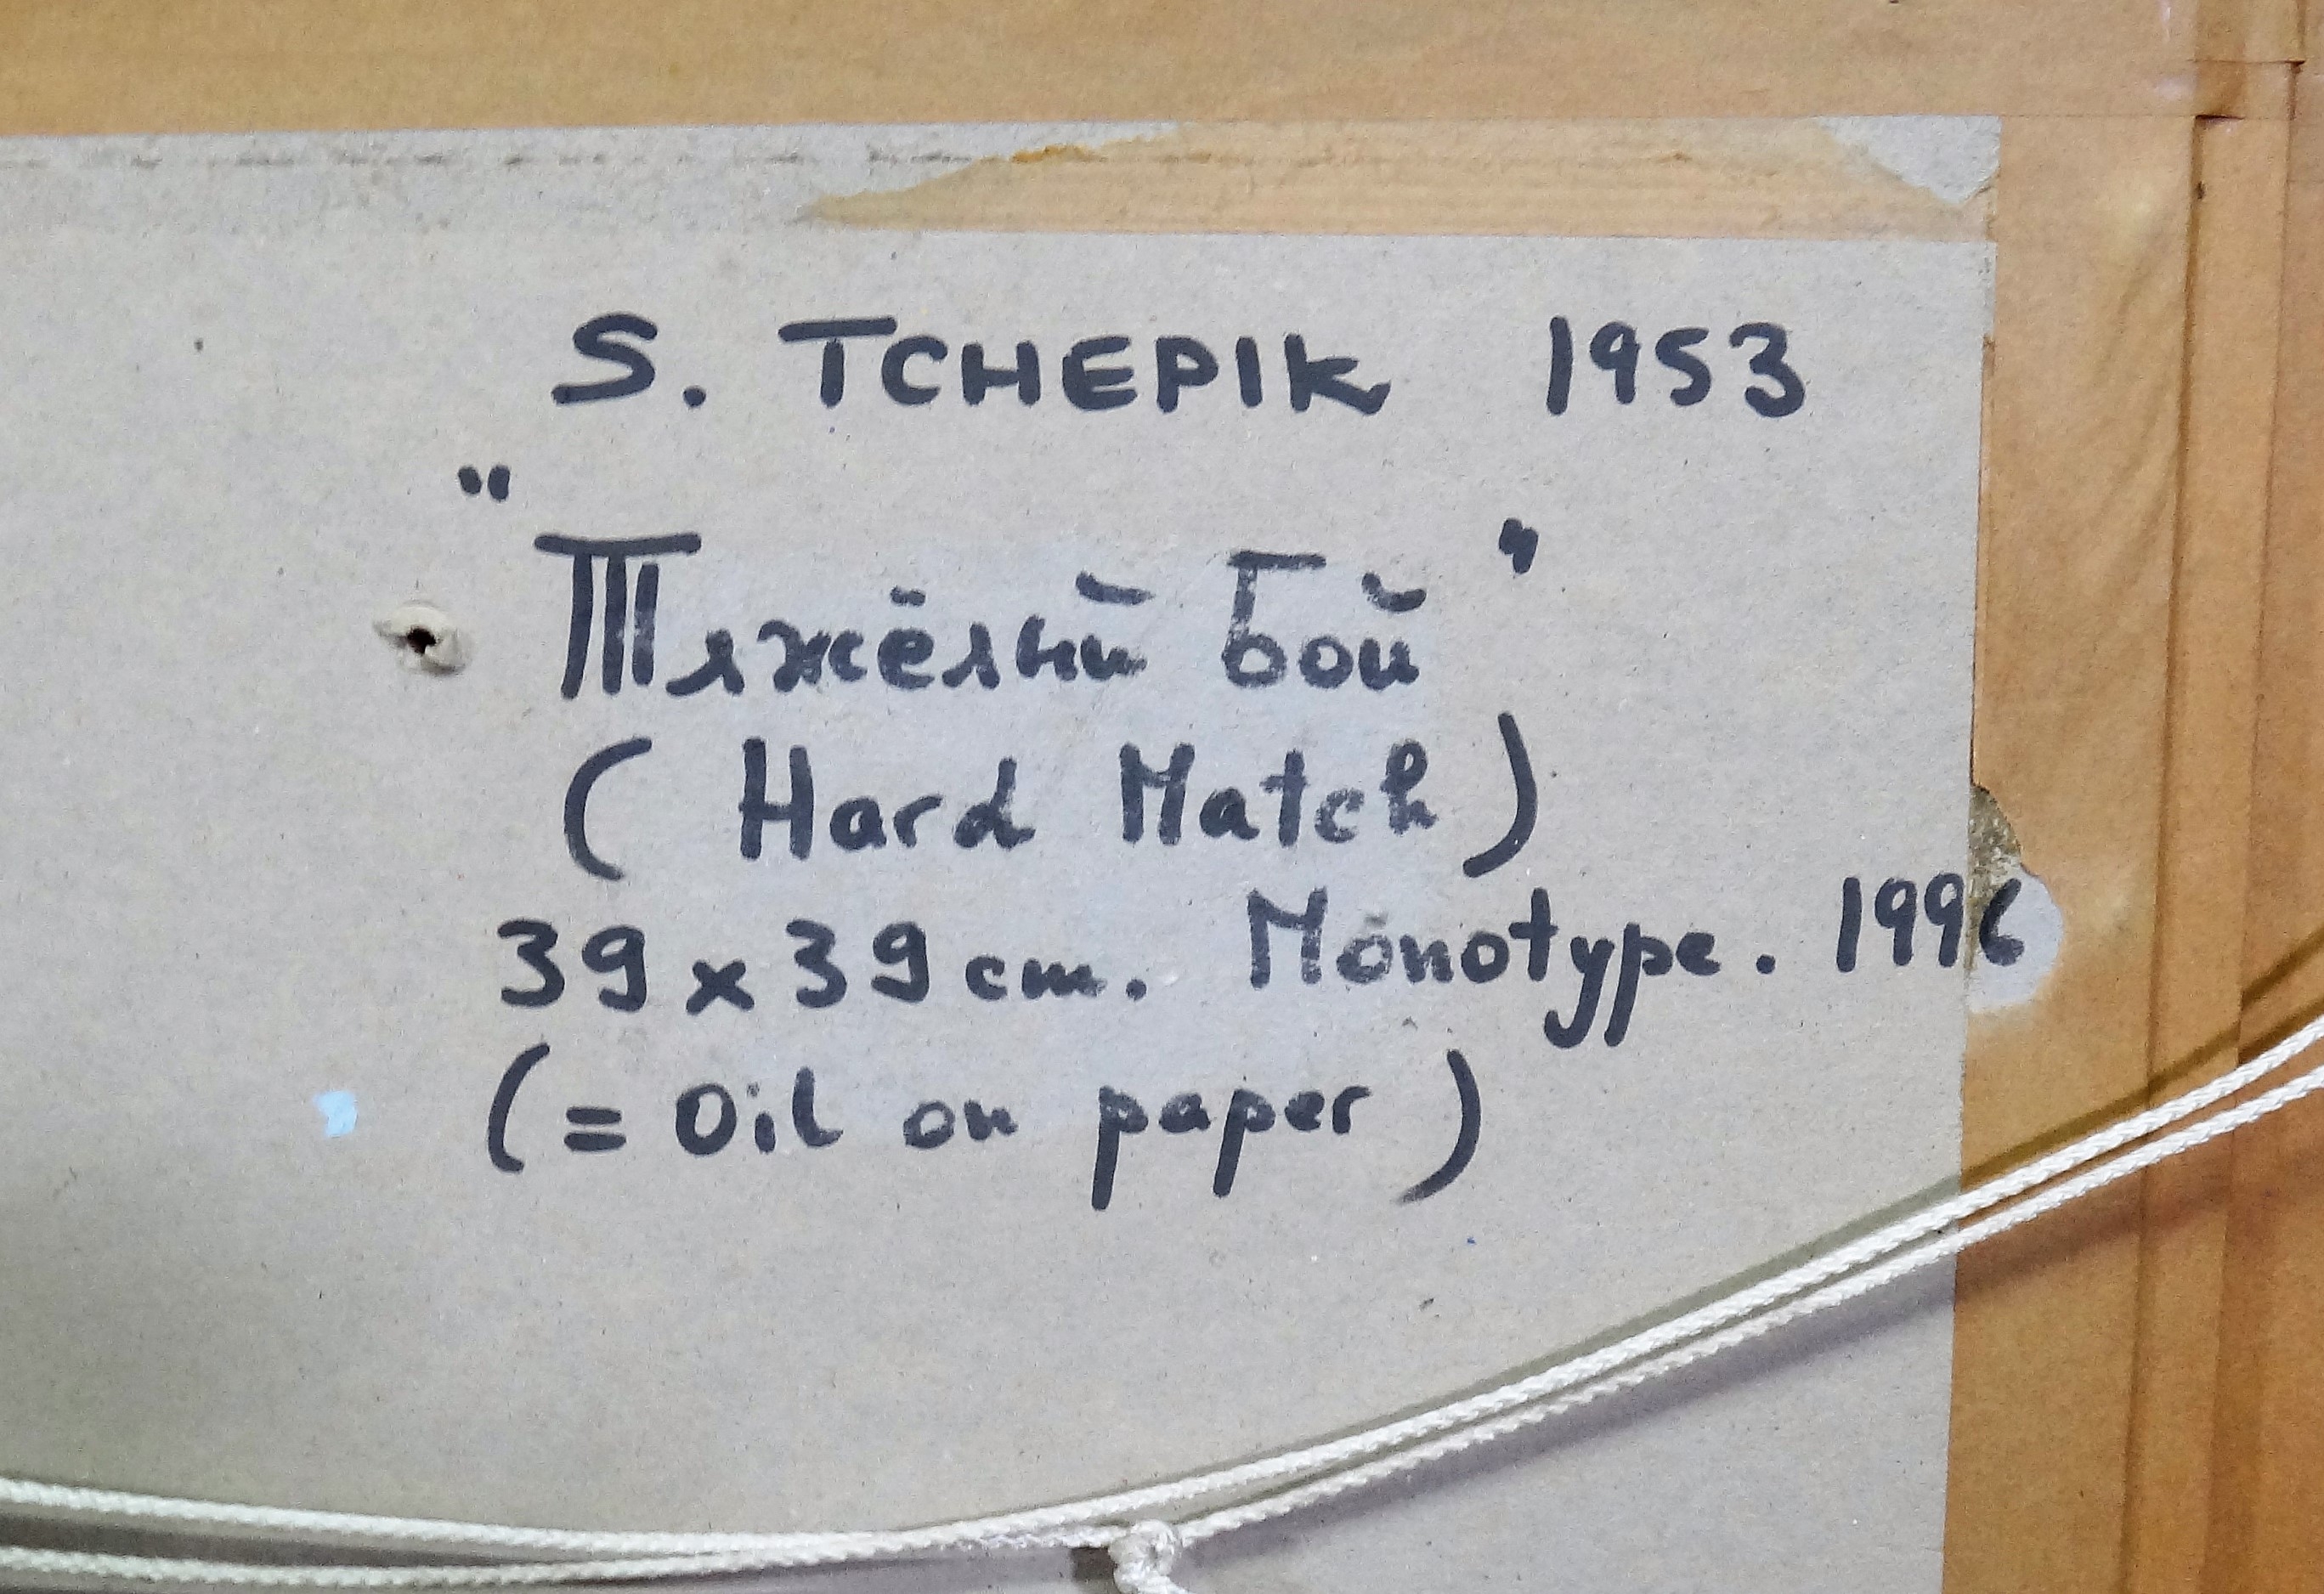 S. TCHEPIK 1953
"Тяжёлый Бой"
(Hard Match)
39 x 39 cm. Monotype. 1996
(= Oil on paper)